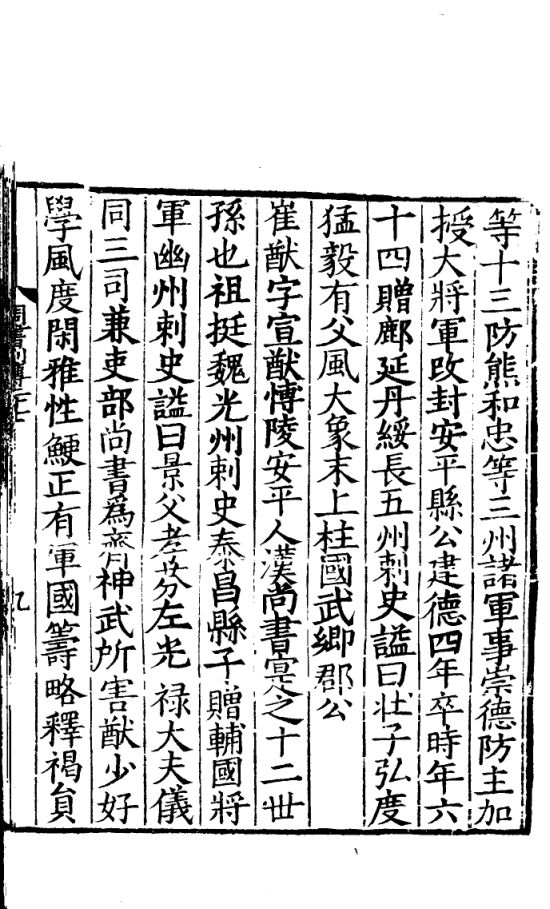 等十三防熊和忠等三州諸軍事崇德防主加
授大將軍攺封安平縣公建德四年卒時年六
十四贈鄜延丹綏長五州刺史謚曰壯子弘度
猛毅有父風大象末上柱國武卿郡公
崔猷字宣猷愽陵安平人漢尚書寔之十二世
孫也祖挺魏光州刺史泰昌縣子贈輔國將
軍幽州刺史謚曰景父孝芬左光禄大夫儀
同三司兼吏部尚書爲齊神武所害猷少好
學風度閑雅性鯁正有軍國籌略釋褐貟
周書列傳二十七
九